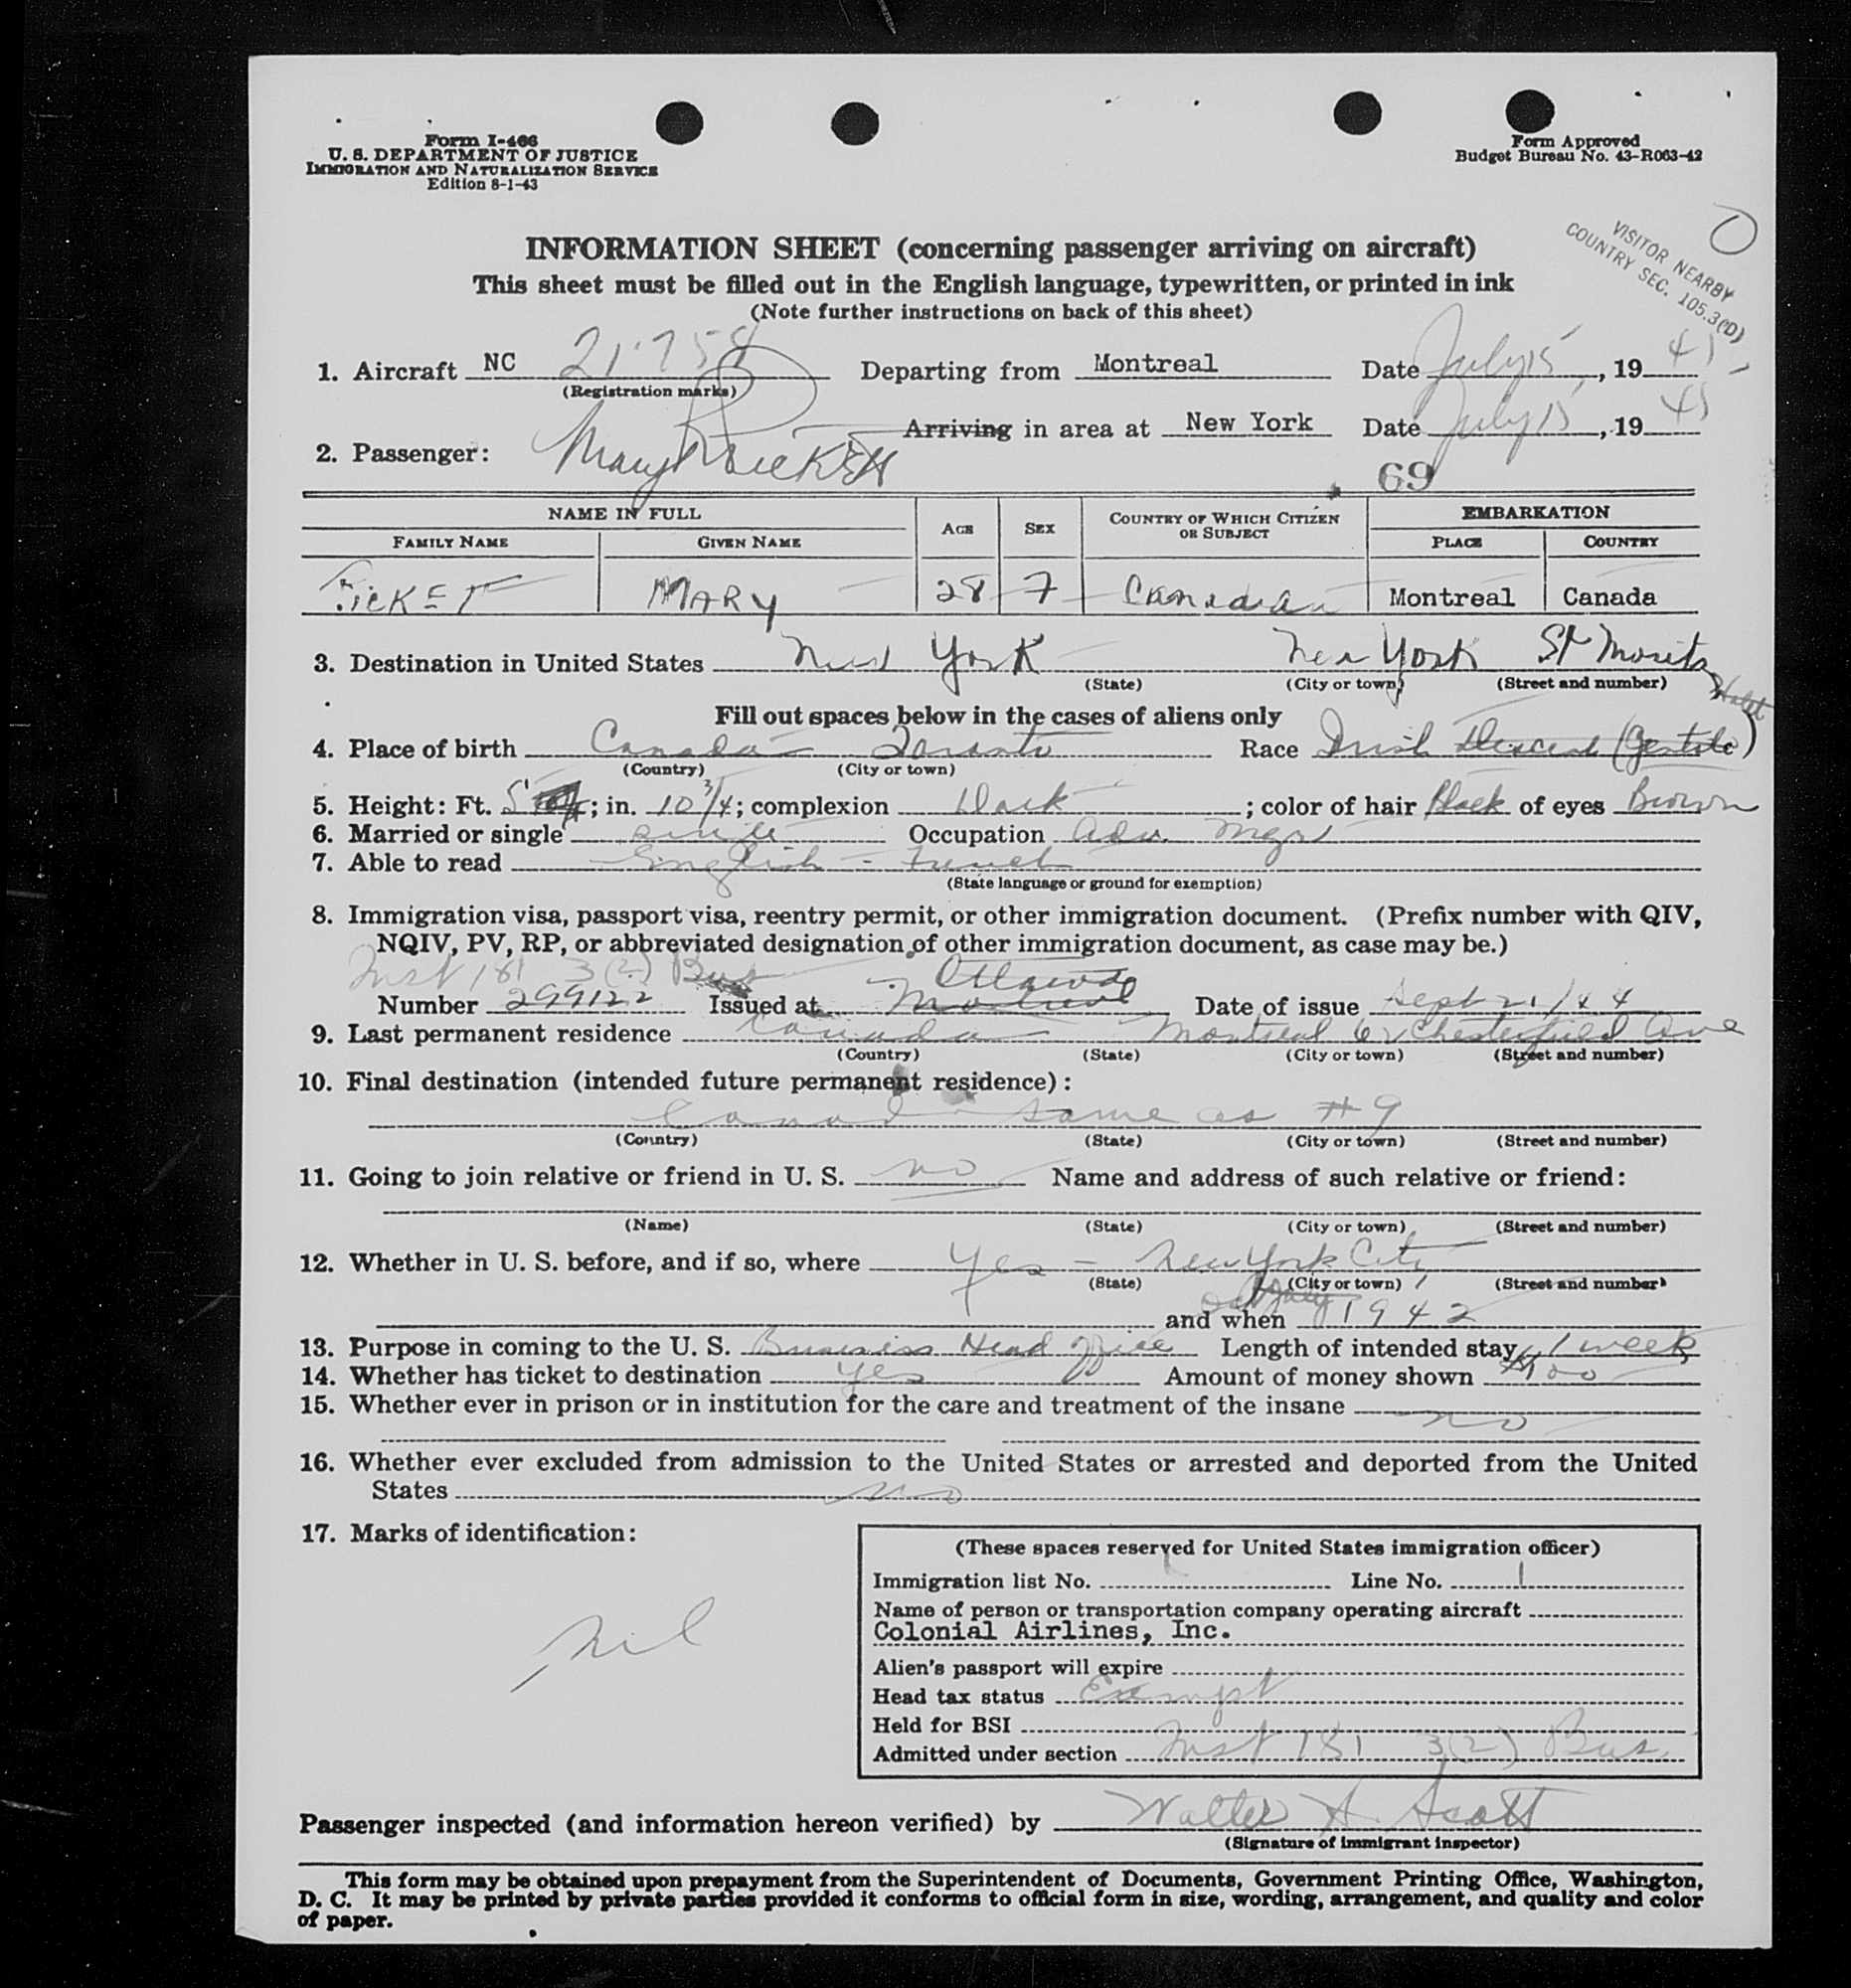 Form I-466
U. S. DEPARTMENT OF JUSTICE
IMMIGRATION AND NATURALIZATION SERVICE
Edition 8-1-43
Form Approved
Budget Bureau No. 43-R063-42
VISITOR NEARBY
COUNTRY SEC. 105.3(D)
INFORMATION SHEET (concerning passenger arriving on aircraft)
This sheet must be filled out in the English language, typewritten, or printed in ink
(Note further instructions on back of this sheet)
1. Aircraft NC 21758 Departing from Montreal Date July 15, 1945
(Registration marks)
Arriving in area at New York Date July 15, 1945
2. Passenger: Mary
69
NAME IN FULL AGE SEX COUNTRY OF WHICH CITIZEN OR SUBJECT EMBARKATION
FAMILY NAME GIVEN NAME PLACE COUNTRY
MARY 28 F Canadian Montreal Canada
3. Destination in United States New York New York St Moritz Hotel
(State) (City or town) (Street and number)
Fill out spaces below in the cases of aliens only
4. Place of birth Canada Toronto Race Irish Descent (Gentile)
(Country) (City or town)
5. Height: Ft. 5; in. 10 3/4; complexion Dark; color of hair Black of eyes Brown
6. Married or single single Occupation Adv. Mgr
7. Able to read English - French
(State language or ground for exemption)
8. Immigration visa, passport visa, reentry permit, or other immigration document. (Prefix number with QIV,
NQIV, PV, RP, or abbreviated designation of other immigration document, as case may be.)
Inst 181 3(2) Bus
Number 299122 Issued at Montreal Ottawa Date of issue Sept 21/44
9. Last permanent residence Canada Montreal 62 Chesterfield Ave
(Country) (State) (City or town) (Street and number)
10. Final destination (intended future permanent residence):
Canada same as #9
(Country) (State) (City or town) (Street and number)
11. Going to join relative or friend in U. S. no Name and address of such relative or friend:
(Name) (State) (City or town) (Street and number)
12. Whether in U. S. before, and if so, where Yes - New York City
(State) (City or town) (Street and number)
and when 1942
13. Purpose in coming to the U. S. Business Head Office Length of intended stay 1 week
14. Whether has ticket to destination yes Amount of money shown $100
15. Whether ever in prison or in institution for the care and treatment of the insane no
16. Whether ever excluded from admission to the United States or arrested and deported from the United
States no
17. Marks of identification:
nil
(These spaces reserved for United States immigration officer)
Immigration list No. Line No. 1
Name of person or transportation company operating aircraft
Colonial Airlines, Inc.
Alien's passport will expire
Head tax status Exempt
Held for BSI
Admitted under section Inst 181 3(2) Bus.
Passenger inspected (and information hereon verified) by Walter A. Scott
(Signature of immigrant inspector)
This form may be obtained upon prepayment from the Superintendent of Documents, Government Printing Office, Washington,
D. C. It may be printed by private parties provided it conforms to official form in size, wording, arrangement, and quality and color
of paper.